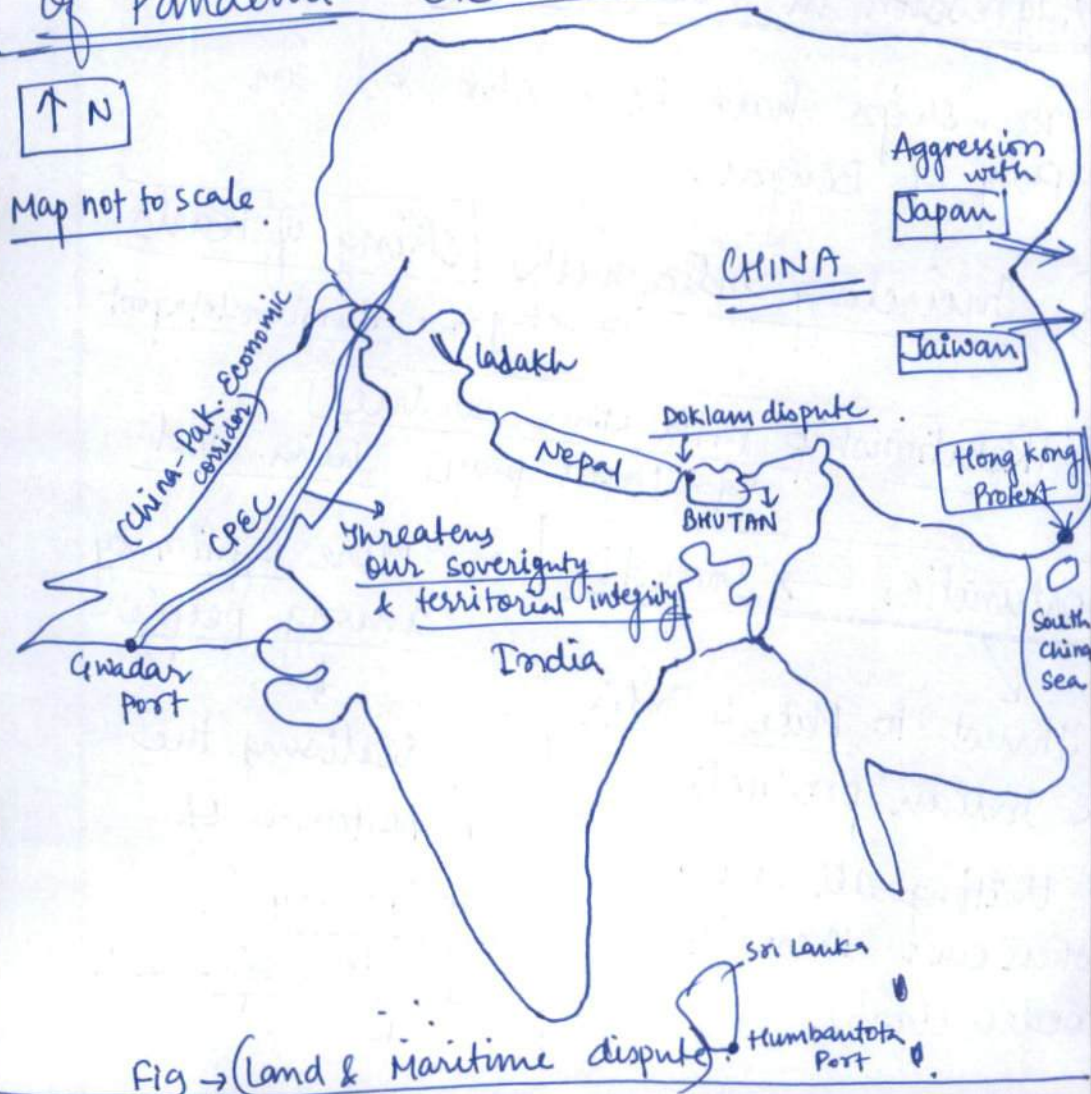 of Pandemic
↑ N
Map not to scale.
Aggression
with
Japan
CHINA
Taiwan
(China-Pak. Economic
corridor)
CPEC
Ladakh
Doklam dispute.
Nepal
BHUTAN
Hong kong
Protest
Threatens
our soverignty
& territorial integrity
India
South
China
Sea
Gwadar
port
Sri Lanka
Humbantota
Port
Fig → (Land & Maritime dispute).